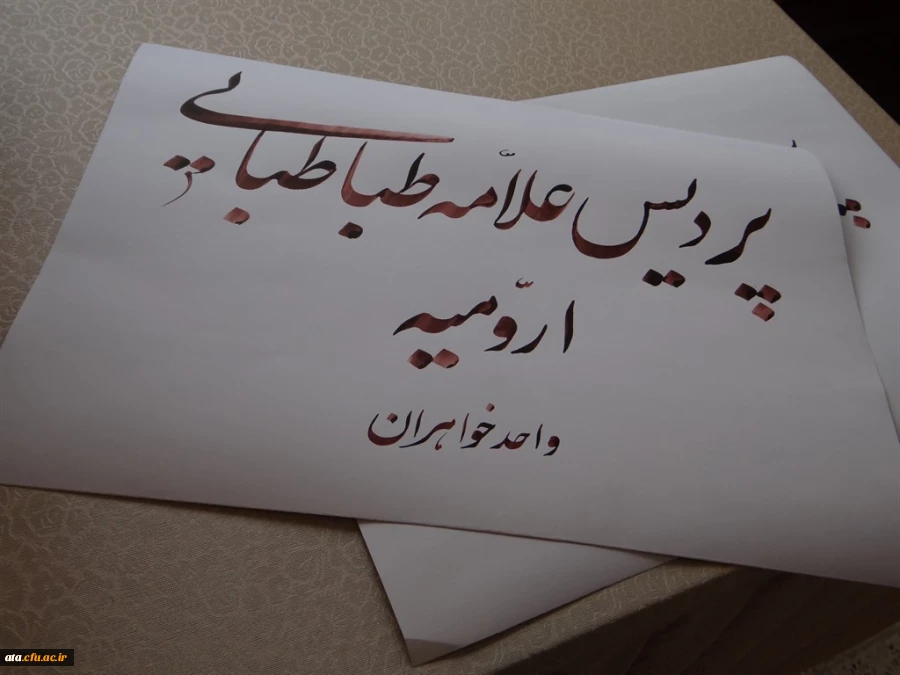 پردیس علاّمه طباطبایی
ارّومیه
واحد خواهران
ata.cfu.ac.ir